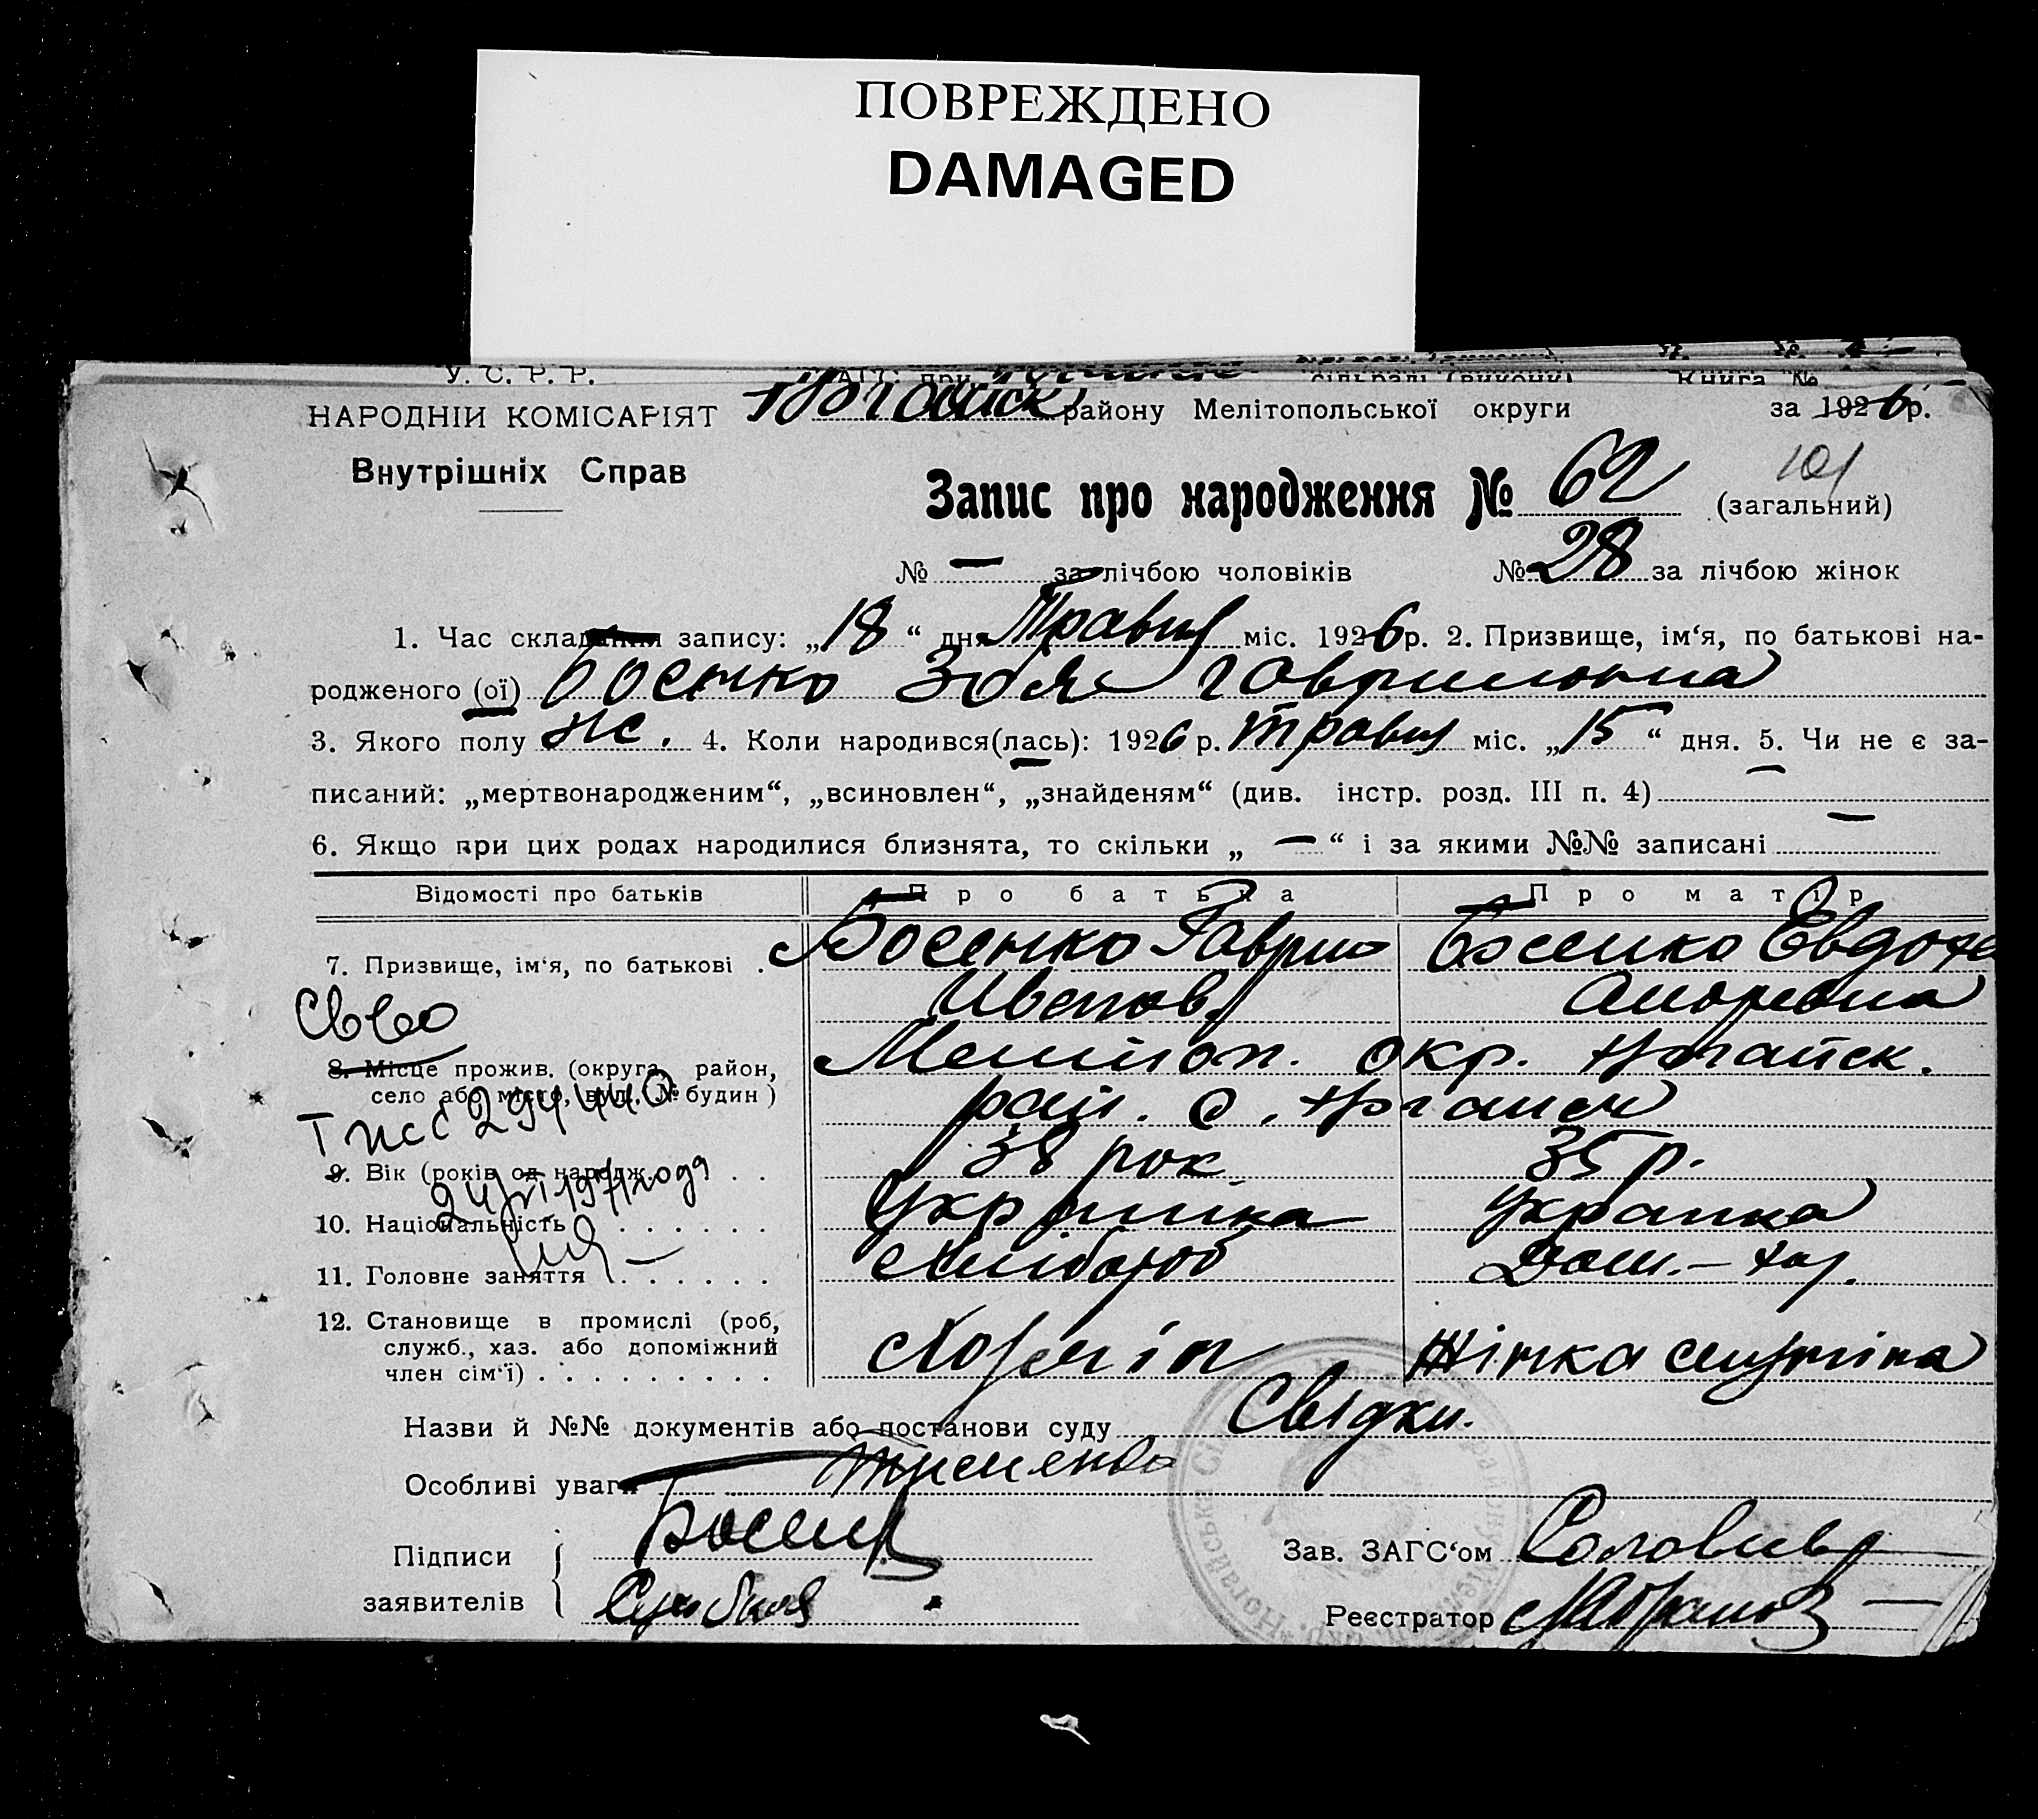 ПОВРЕЖДЕНО
DAMAGED
У. С. Р. Р.
НАРОДНІЙ КОМІСАРІЯТ
Внутрішніх Справ
Ногайськ району Мелітопольської округи за 1926 р.
Запис про народження № 62 (загальний)
101
№ — за лічбою чоловіків № 28 за лічбою жінок
1. Час складання запису: „18“ дня Травня міс. 1926 р. 2. Призвище, ім‘я, по батькові на-
родженого (ої) Босенко Зоя Гавриловна
3. Якого полу жс. 4. Коли народився(лась): 1926 р. Травня міс. „15“ дня. 5. Чи не є за-
писаний: „мертвонародженим“, „всиновлен“, „знайденям“ (див. інстр. розд. III п. 4) —
6. Якщо при цих родах народилися близнята, то скільки „ — “ і за якими №№ записані —
Відомості про батьків Про батька Про матір
7. Призвище, ім‘я, по батькові . Босенко Гаврило Босенко Евдокия
Иванов. Андреевна
Св-во
8. Місце прожив. (округа, район, Мелітоп. окр. Ногайск.
село або місто, вул., № будин) рай. с. Ногайск
294440
9. Вік (років од народж. . . 38 рок 35 р.
24/VI 1971 года
10. Національність . . . . . . Українка
11. Головне заняття . . . . . . Хлібороб Дом. — хаз.
12. Становище в промислі (роб,
служб., хаз. або допоміжний
член сім‘ї) . . . . . . . . . Жінка
Назви й №№ документів або постанови суду Свідки.
Особливі уваги
Підписи Босенко Зав. ЗАГС‘ом Соловйов
заявителів Реєстратор